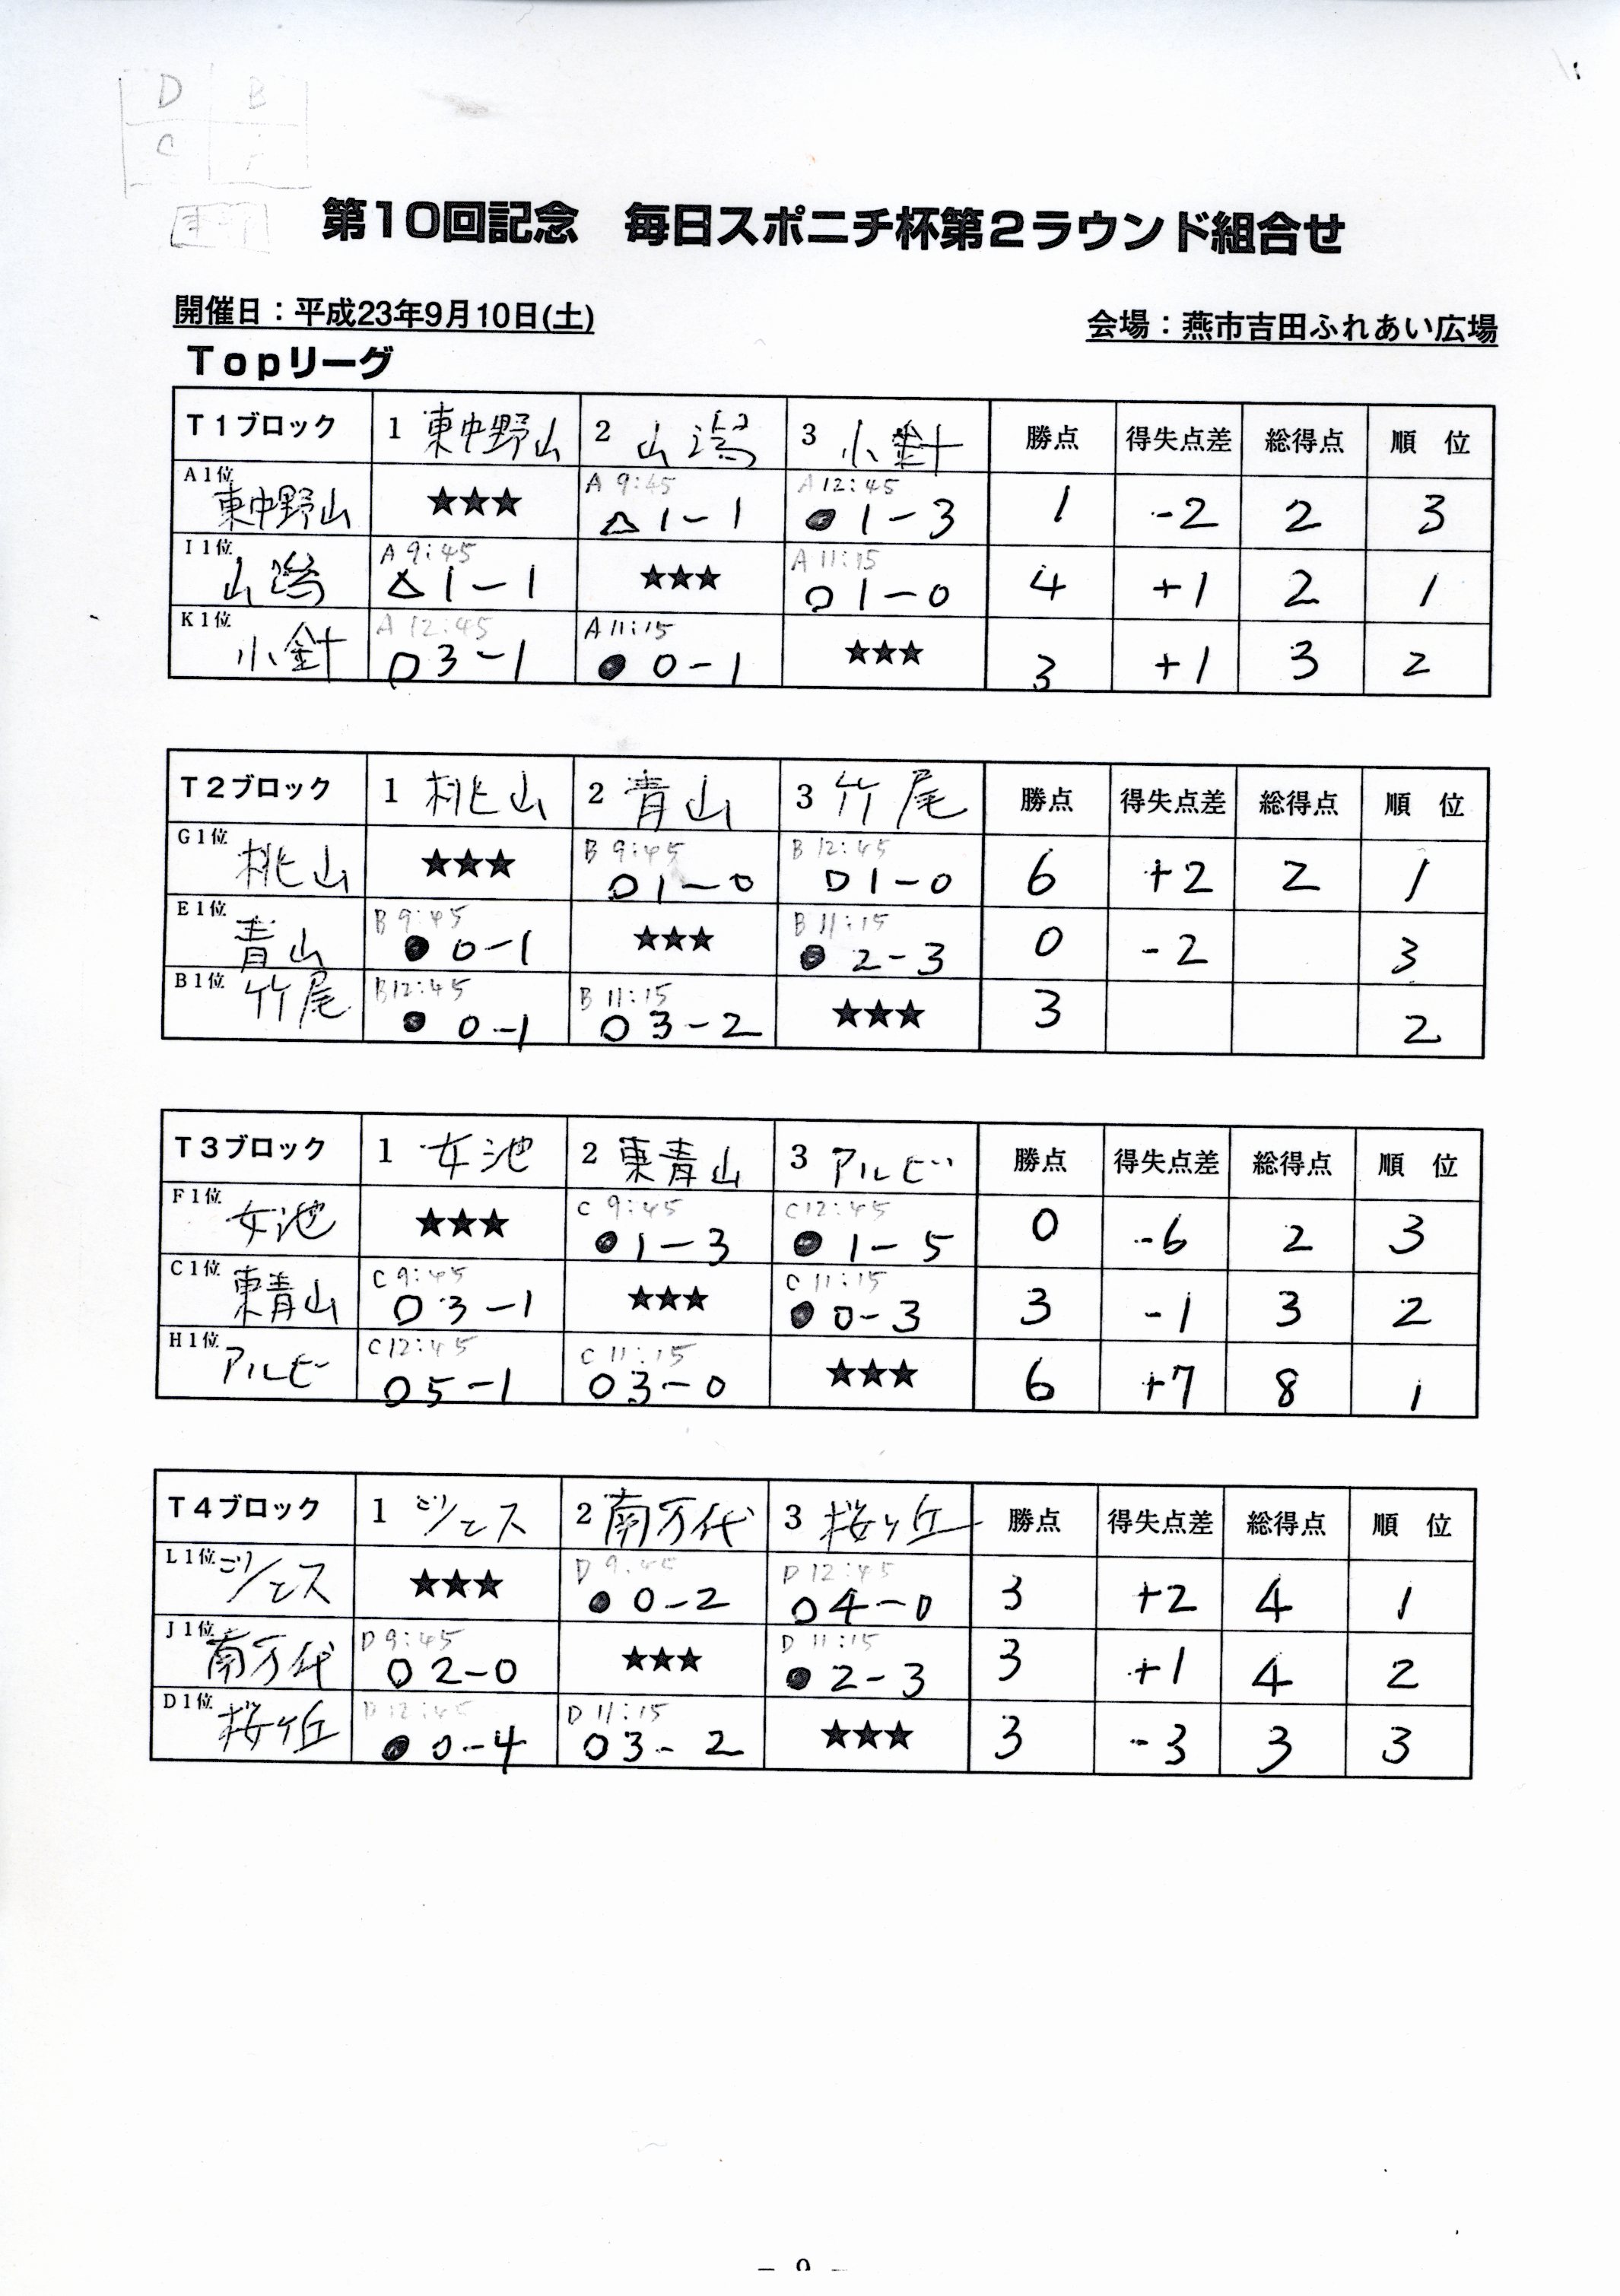 D B
C
第10回記念 毎日スポニチ杯第2ラウンド組合せ
開催日：平成23年9月10日(土) 会場：燕市吉田ふれあい広場
Topリーグ
T1ブロック 1 東中野山 2 山潟 3 小針 勝点 得失点差 総得点 順 位
A1位 東中野山 ★★★ A 9:45 △ 1-1 A 12:45 ● 1-3 1 -2 2 3
I1位 山潟 A 9:45 △ 1-1 ★★★ A 11:15 ○ 1-0 4 +1 2 1
K1位 小針 A 12:45 ○ 3-1 A 11:15 ● 0-1 ★★★ 3 +1 3 2
T2ブロック 1 桃山 2 青山 3 竹尾 勝点 得失点差 総得点 順 位
G1位 桃山 ★★★ B 9:45 ○ 1-0 B 12:45 ○ 1-0 6 +2 2 1
E1位 青山 B 9:45 ● 0-1 ★★★ B 11:15 ● 2-3 0 -2 3
B1位 竹尾 B 12:45 ● 0-1 B 11:15 ○ 3-2 ★★★ 3 2
T3ブロック 1 女池 2 東青山 3 アルビ 勝点 得失点差 総得点 順 位
F1位 女池 ★★★ C 9:45 ● 1-3 C 12:45 ● 1-5 0 -6 2 3
C1位 東青山 C 9:45 ○ 3-1 ★★★ C 11:15 ● 0-3 3 -1 3 2
H1位 アルビ C 12:45 ○ 5-1 C 11:15 ○ 3-0 ★★★ 6 +7 8 1
T4ブロック 1 2 南万代 3 桜ヶ丘 勝点 得失点差 総得点 順 位
L1位 ★★★ D 9:45 ● 0-2 D 12:45 ○ 4-0 3 +2 4 1
J1位 南万代 D 9:45 ○ 2-0 ★★★ D 11:15 ● 2-3 3 +1 4 2
D1位 桜ヶ丘 D 12:45 ● 0-4 D 11:15 ○ 3-2 ★★★ 3 -3 3 3
- 9 -